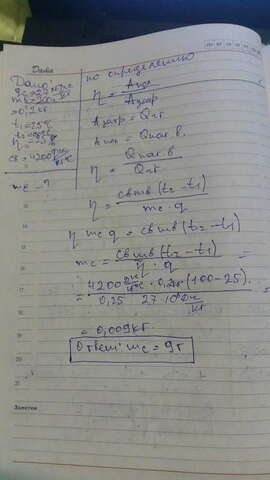 Дата
Дано
mв=200г
=0,2кг
t₁=25°C
cв=4200 Дж/кг°C
mc -?
по определению
η = Aпол/Aзатр
Aзатр = Qсг
Aпол = Qнаг.в.
η = Qнаг.в/Qсг
η = cвmв(t₂-t₁)/mc·q
η mc q = cвmв(t₂-t₁)
mc = cвmв(t₂-t₁)/η·q =
= 4200 Дж/кг°C · 0,2кг(100-25)/0,25 27·10⁶ Дж/кг =
= 0,009кг
Ответ: mc = 9г
Заметки